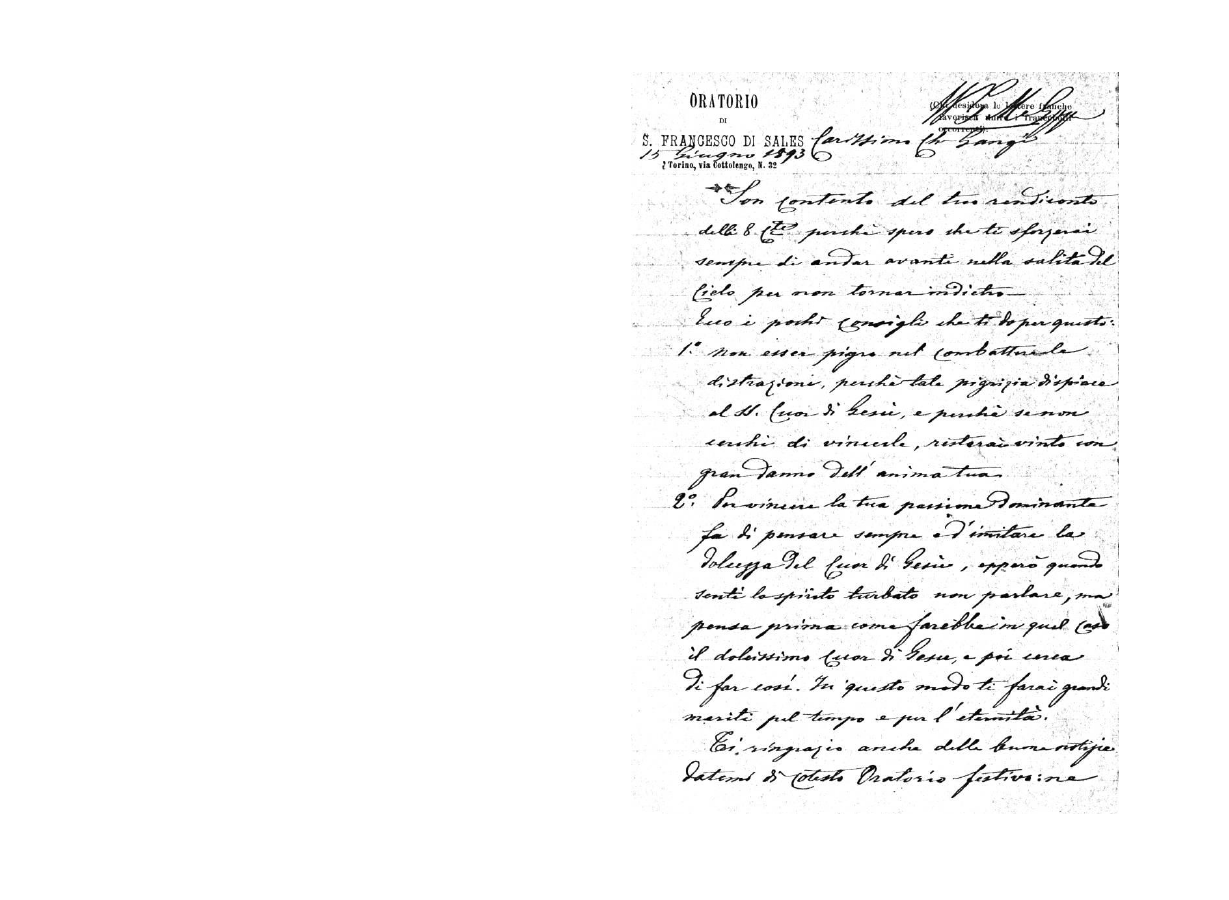 ORATORIO
DI
S. FRANCESCO DI SALES
15 Giugno 1893
Torino, via Cottolengo, N. 32
(Chi desidera le lettere franche
favorisca
occorrenti).
Carissimo Ch Gangi
Son contento del tuo rendiconto
delli 8 Cte perchè spero che ti sforzerai
sempre di andar avanti nella salita del
Cielo per non tornar indietro
Ecco i pochi consigli che ti do per questo:
1.° Non esser pigro nel combattere le
distrazioni, perchè tale pigrizia dispiace
al SS. Cuor di Gesù, e perchè se non
cerchi di vincerle, resterai vinto con
gran danno dell' anima tua
2.° Per vincere la tua passione dominante
fa di pensare sempre e d'imitare la
dolcezza del Cuor di Gesù, epperò quando
senti lo spirito turbato non parlare, ma
pensa prima come farebbe in quel caso
il dolcissimo Cuor di Gesù, e poi cerca
di far così. In questo modo ti farai grandi
meriti pel tempo e per l'eternità.
Ti ringrazio anche delle buone notizie
datemi di cotesto Oratorio festivo: ne